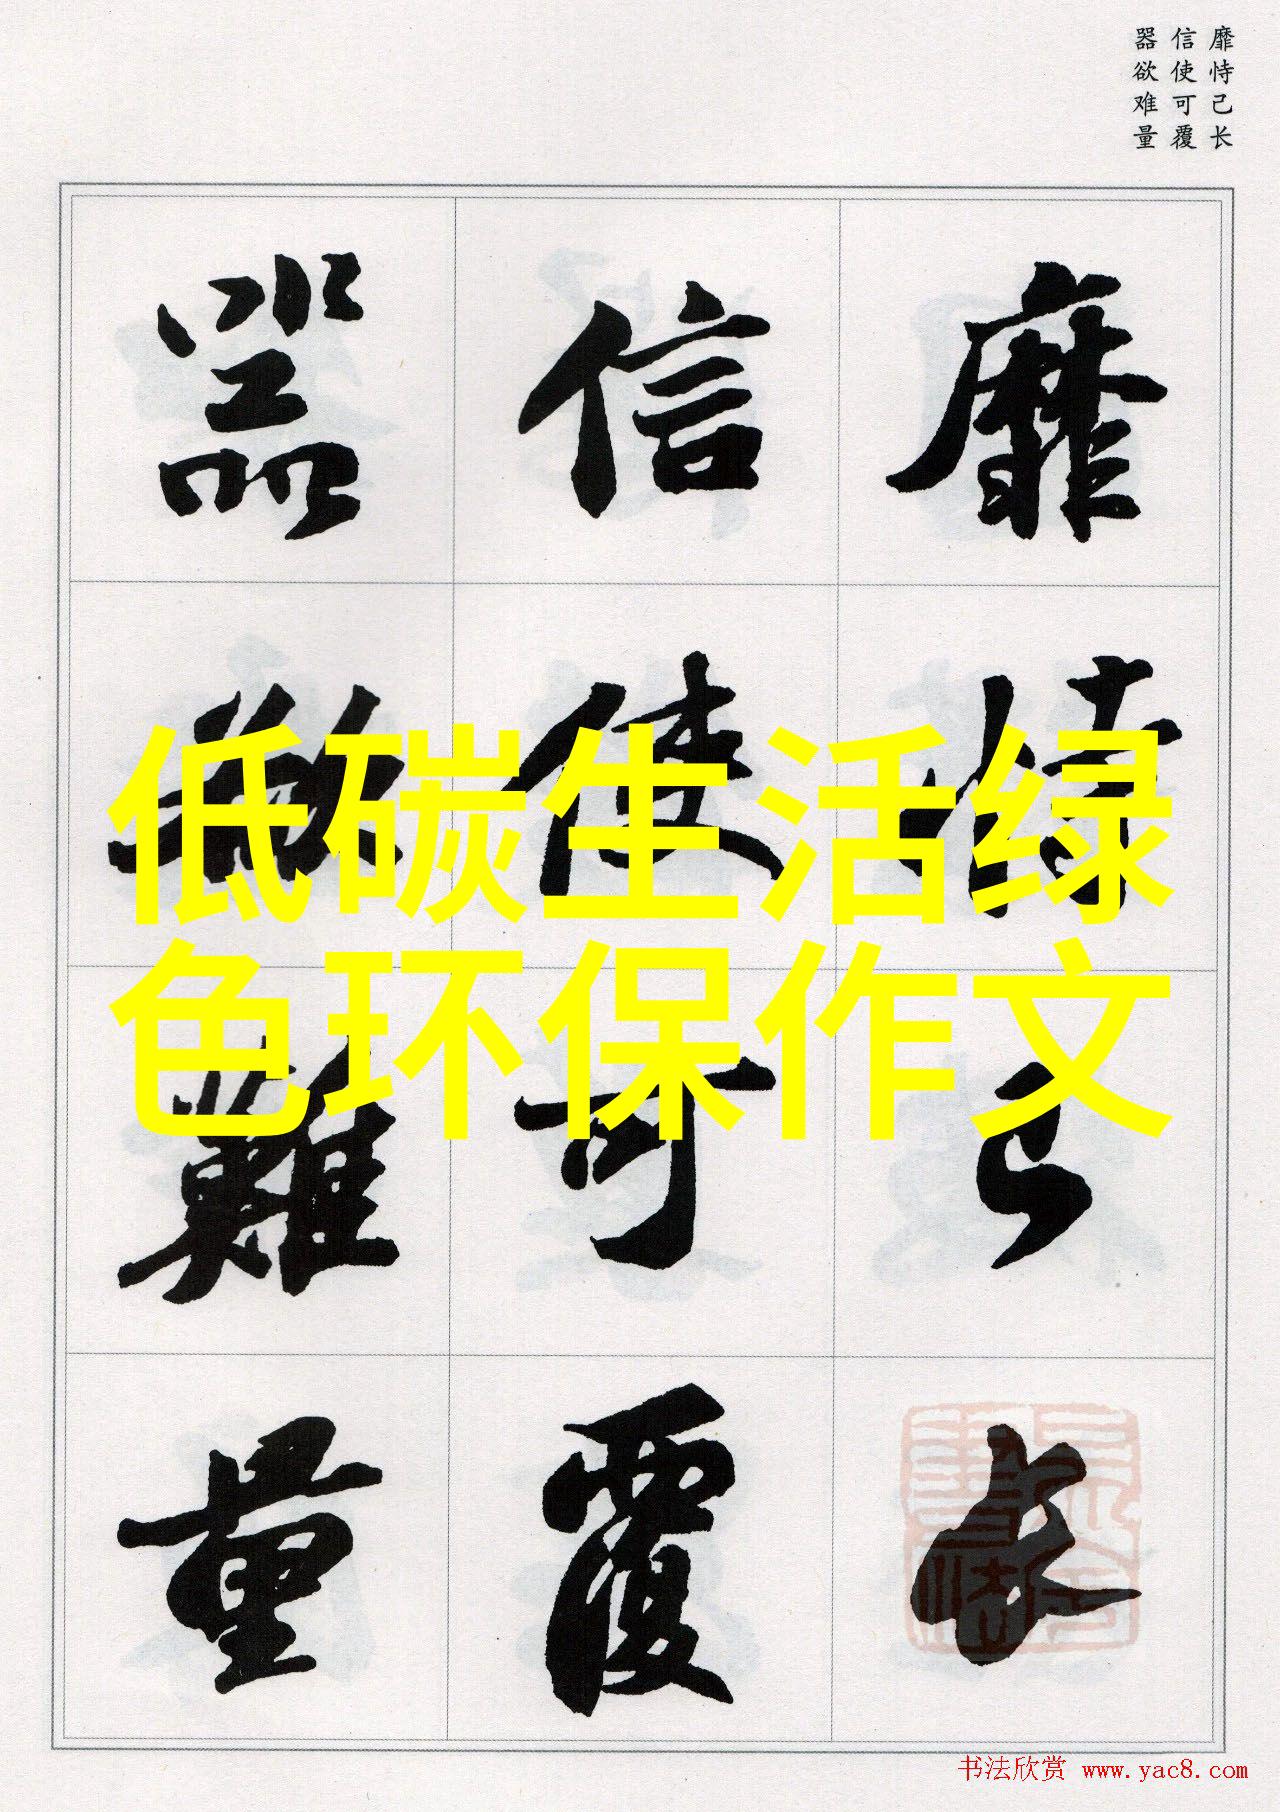 靡恃己长
信使可覆
器欲难量
靡恃己长
信使可覆
器欲難量
低碳生活绿
色环保作文
书法欣赏 www.yac8.com